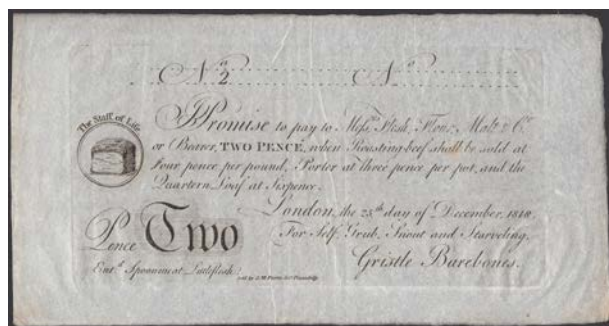 No 2 No
The Staff of Life
I Promise to pay to Messrs Flesh, Flour, Malt & Co
or Bearer, TWO PENCE, when Roasting beef shall be sold at
Four pence per pound, Porter at three pence per pot, and the
Quartern Loaf at Sixpence.
London, the 25th day of December, 1818.
Pence Two For Self, Grub, Snout and Starveling,
Entd Spoonmeat Littleflesh. Gristle Barebones.